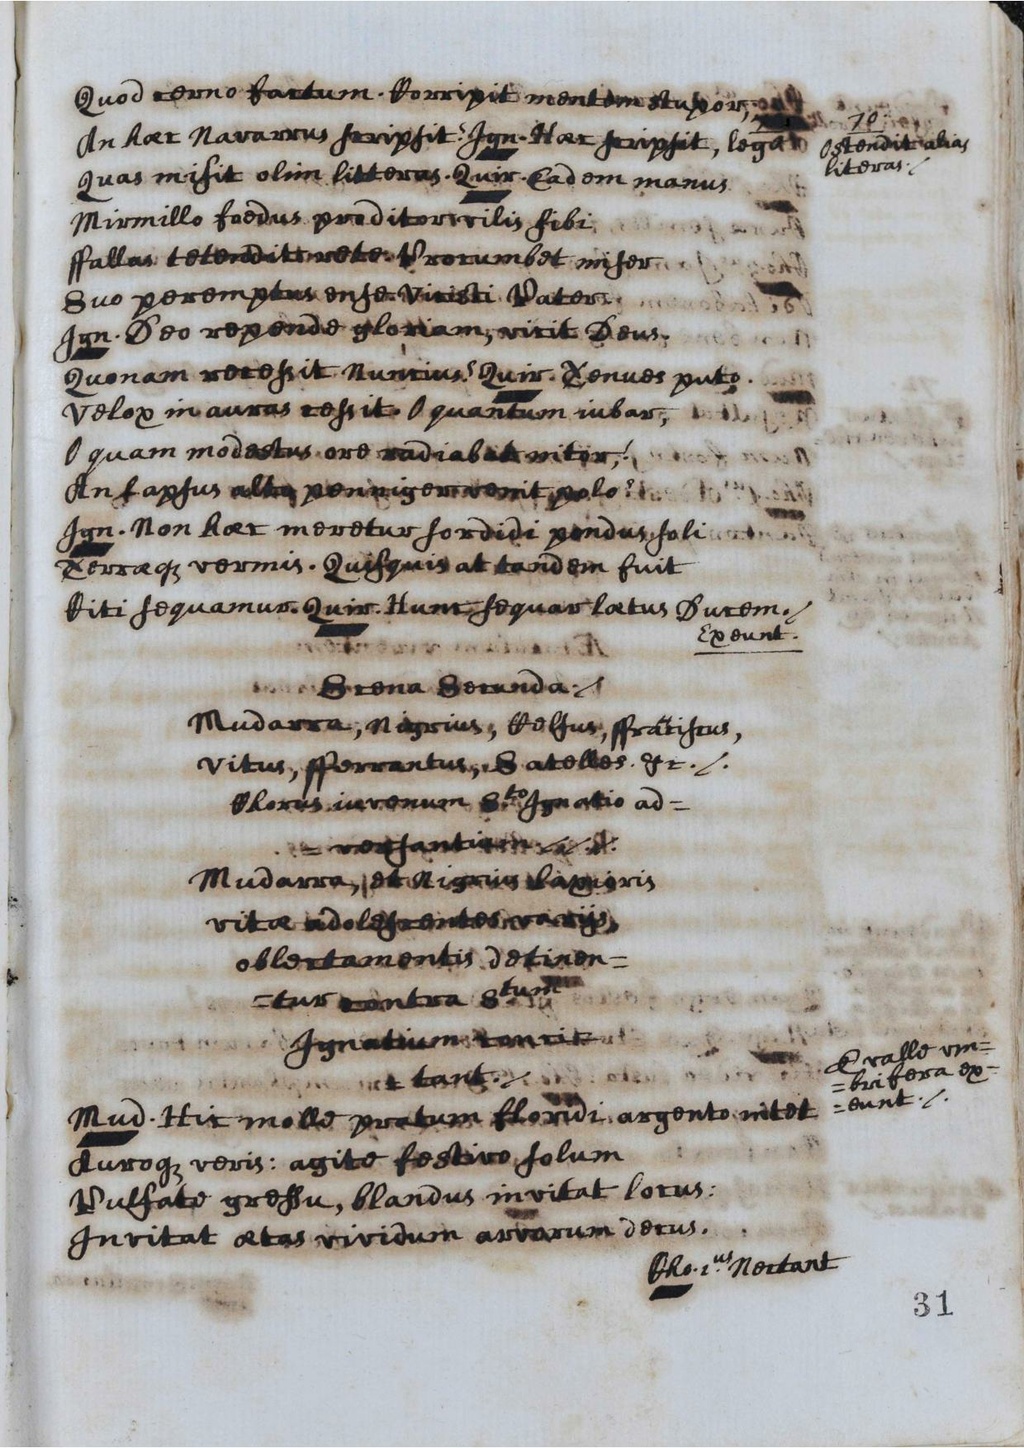 Quod cerno factum. Corripit mentem stupor,
An haec Navarrus scripsit? Ign. Haec scripsit, lega
70
Ostendit alias
literas./
Quas misit olim litteras. Quir. Eadem manus
Mirmillo foedus proditor vilis sibi
ffallax tetendit rete. Procumbet miser
Suo peremptus ense. Vicisti Pater.
Ign. Deo repende gloriam, vicit Deus.
Quonam recessit Nuncius? Quir. Tenues puto.
Velox in auras cessit. O quantum iubar,
O quam modestus ore radiabat nitor,!
An lapsus alto penniger venit polo?
Ign. Non haec meretur sordidi pondus soli
Terraeq; vermis. Quisquis at tandem fuit
Citi sequamur. Quir. Hunc sequar laetus Ducem./
Exeunt.
Scena Secunda./
Mudarra, Nigrius, Celsus, ffrãciscus,
Vitus, fferrantus, Satelles. &c./.
Chorus iuvenum S.to Ignatio ad=
=versantium
Mudarra, et Nigrius laxioris
vitae adolescentes varijs
oblectamentis detinen=
=tur contra S.tum
Ignatium concit
tant./
E valle vm=
=brifera ex=
=eunt./.
Mud. Hic molle pratum floridi argento nitet
Auroq; veris: agite festivo solum
Pulsate gressu, blandus invitat locus:
Invitat aetas vividum arvorum decus.
Cho. 1us Nectant
31